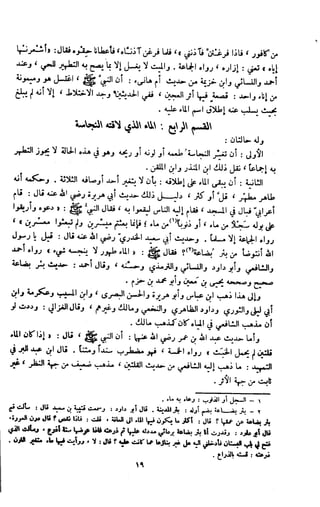 من كافور ، فاذا فرغتن فآذنني » ، فلما فرغن آذناه ، فأعطانا حقوه فقال : « أشعرنها
إياه » تعني : إزاره ، رواه الجماعة . والميت لا يغسل إلا بما يصح به التطهير للحي ، وعند
أحمد والنسائي وابن خزيمة من حديث أم هانىء : أن النبي ﷺ « اغتسل هو وميمونة
من إناء واحد : قصعة فيها أثر العجين » ففي الحديثين وجد الاختلاط ، إلا أنه لم يبلغ
بحيث يسلب عنه إطلاق اسم الماء عليه .
القسم الرابع : الماء الذي لاقته النجاسة
وله حالتان :
الأولى : أن تغير النجاسة طعمه أو لونه أو ريحه وهو في هذه الحالة لا يجوز التطهر
به إجماعا ، نقل ذلك ابن المنذر وابن الملقن .
الثانية : أن يبقى الماء على إطلاقه : بأن لا يتغير أحد أوصافه الثلاثة . وحكمه أنه
طاهر مطهر ، قل أو كثر ، دليل ذلك حديث أبي هريرة رضي الله عنه قال : قام
أعرابي فبال في المسجد ، فقام إليه الناس ليقعوا به ، فقال النبي ﷺ : « دعوه وأريقوا
على بوله سجلا من ماء ، أو ذنوبا (١) من ماء ، فإنما بعثتم ميسرين ولم تبعثوا معسرين » ،
رواه الجماعة إلا مسلما . وحديث أبي سعيد الخدري رضي الله عنه قال : قيل يا رسول
الله أنتوضأ من بئر بضاعة (٢) ؟ فقال ﷺ : « الماء طهور لا ينجسه شيء » رواه أحمد
والشافعي وأبو داود والنسائي والترمذي وحسنه ، وقال أحمد : حديث بئر بضاعة
صحيح وصححه يحيى بن معين وأبو محمد بن حزم .
وإلى هذا ذهب ابن عباس وأبو هريرة والحسن البصري ، وابن المسيب وعكرمة وابن
أبي ليلى والثوري وداود الظاهري والنخعي ومالك وغيرهم ، وقال الغزالي : وددت لو
أن مذهب الشافعي في المياه كان كمذهب مالك .
وأما حديث عبد الله بن عمر رضي الله عنهما : أن النبي ﷺ ، قال : « إذا كان الماء
قلتين لم يحمل الخبث » رواه الخمسة ، فهو مضطرب سندا ومتنا . قال ابن عبد البر في
التمهيد : ما ذهب إليه الشافعي من حديث القلتين ، مذهب ضعيف من جهة النظر ، غير
ثابت من جهة الأثر .
١ - السجل أو الذنوب : وعاء به ماء .
٢ - بئر بضاعة بضم أوله : بئر المدينة . قال أبو داود : وسمعت قتيبة بن سعيد قال : سألت قيم
بئر بضاعة عن عمقها ؟ قال : أكثر ما يكون فيها الماء الى العانة ، قلت : فاذا نقص ؟ قال دون العورة .
قال أبو داود : وقدرت أنا بئر بضاعة بردائي مددته عليها ثم ذرعته فاذا عرضها ستة أذرع ، وسألت الذي
فتح لي باب البستان فأدخلني اليه هل غير بناؤها عما كانت عليه ؟ قال : لا ، ورأيت فيها ماء متغير اللون .
ذرعته : قسته بالذراع .
١٩